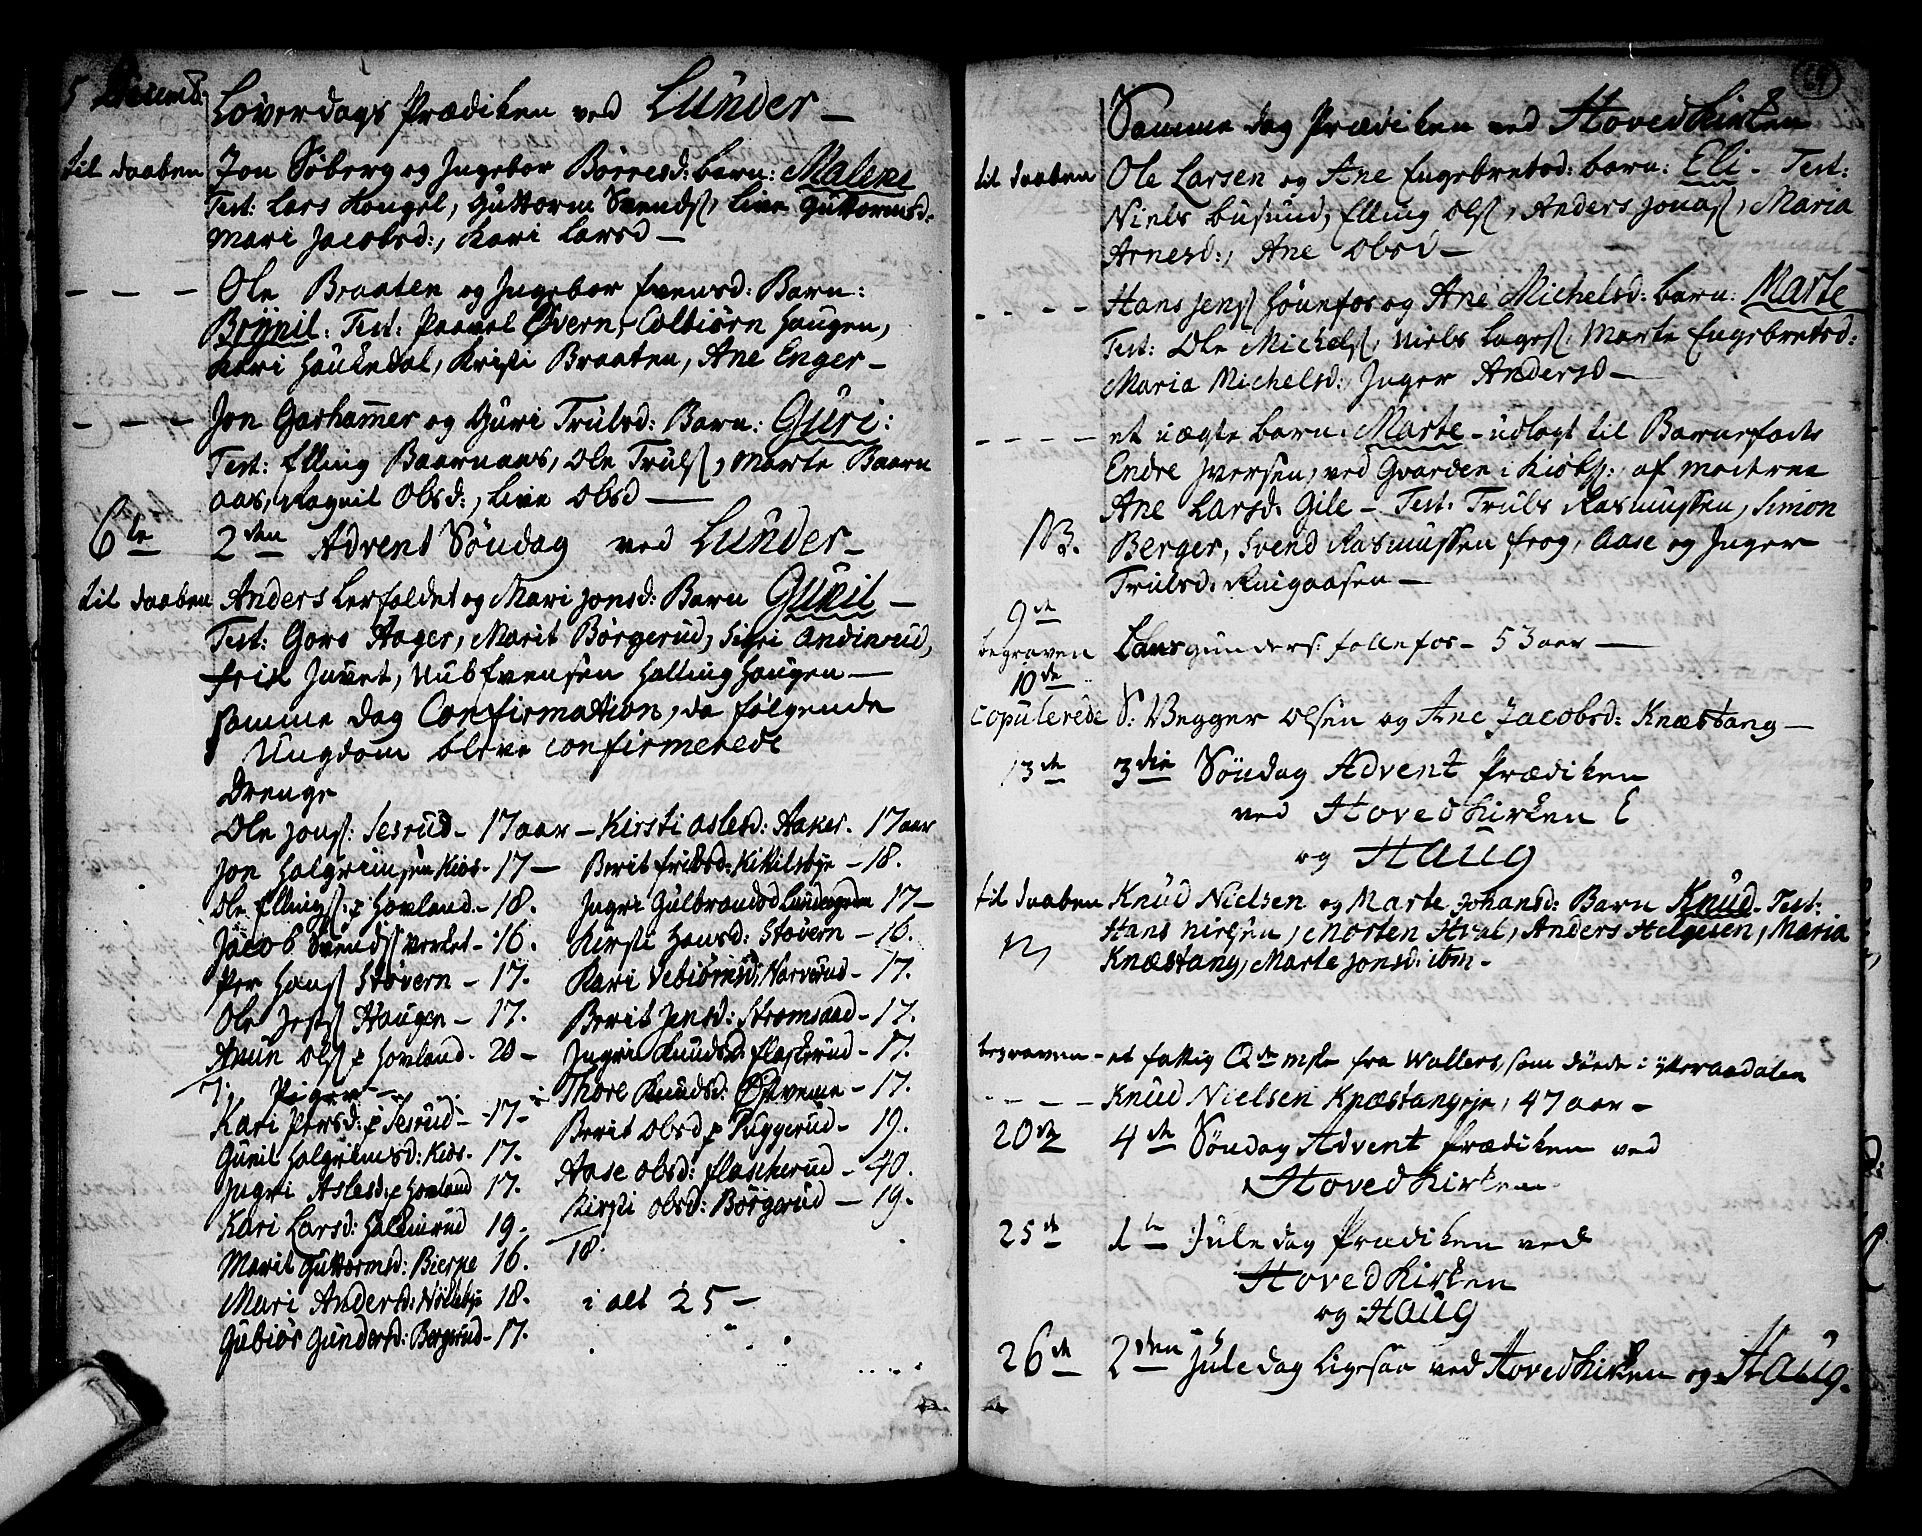 5 Decemb:
Løverdags Prædiken ved Lunder —
til daaben Jon Søberg og Ingebor Børresd: barn: Malene
Test: Lars Hougel, Guttorm Svends, Live Guttormsd:
Mari Jacobsd:, Kari Larsd —
— — — Ole Braaten og Ingebor Evensd: Barn:
Brynil: Test: Paavel Øvern, Colbiørn Haugen,
Kari Houkedal, Kristi Braaten, Ane Enger —
— — — Jon Garhammer og Guri Trulsd: Barn: Guri:
Test: Elling Baarnaas, Ole Truls, Marte Baarn
aas, Ragnil Olsd:, Live Olsd —
6te 2den Advent Søndag ved Lunder —
til daaben Anders Lerfaldet og Mari Jonsd: Barn Gunil —
Test: Goro Aager, Marit Børgerud, Sigri Andinrud,
Juvet, Nub Evensen Halling Haugen —
Samme dag Confirmation, da følgende
Ungdom bleve confirmerede
Drenge
Ole Jons: Sesrud — 17 aar — Kirsti Aslesd: Aaker. 17 aar
Jon Halgrimsen Kios — 17 — Berit Eriksd: Kikilsbye — 18.
Ole Ellings: p Hovland — 18. Ingri Gulbrandsd Lundesgden 17 —
Jacob Svends Verket — 16. Kirsti Hansd: Støvern — 16.
Per Hans Støvern — 17. Kari Vebiørnsd: Narverud — 17.
Ole Jests Haugen — 17. Berit Jensd: Strømsaad — 17.
Amun Ols p Hovland — 20 — Ingri Knudsd: Flaskerud — 17.
7. Piger — Thore Knudsd: Østvene — 17.
Kari Persd: p Sesrud — 17 — Berit Olsd p Ruggerud — 19.
Gunil Halgrimsd: Kios. 17. Aase Olsd: Flascherud — 40.
Ingri Aslesd: p Hovland 17. Kirsti Olsd: Børgerud — 19.
Kari Larsd: Halkinrud 19. 18.
Marit Guttormsd: Bierke 16.
Mari Andersd: Nøblebye 18. i alt 25 —
Gubiør Gundersd: Bergerud — 17.
64
Samme dag Prædiken ved Hovedkirken
til daaben Ole Larsen og Ane Engebretsd: barn: Eli — Test:
Niels Busund, Elling Ols, Anders Jonas, Maria
Arnesd:, Ane Olsd —
— — — — Hans Jens Hønefos og Ane Michelsd: barn: Marte
Test: Ole Michels, Niels Lages, Marte Engebretsd:
Maria Michelsd:, Inger Andersd —
— — — — et uægte barn: Marte — udlagt til Barnefads
Endre Iversen, ved Gvarden i Kiøbh: af moderen
Ane Larsd: Gile — Test: Truls Rasmussen, Simon
113. Berger, Svend Rasmussen Frog, Aase og Inger
Trulsd: —
9de
begraven Lars Gunders: Follefos — 53 aar —
10de
copulerede S: Vegger Olsen og Ane Jacobsd: Knæstang —
13de 3die Søndag Advent Prædiken
ved Hovedkirken
og Haug
til daaben Knud Nielsen og Marte Johansd: Barn Knud. Test:
Hans Nielsen, Morten Hval, Anders Helgesen, Maria
Knæstang, Marte Jonsd: ibm —
begraven — et fattig Qde mske fra Walders, som døede i ytteraadalen
— — — — Knud Nielsen Knæstangeje, 47 aar —
20de 4de Søndag Advent Prædiken ved
Hovedkirken
25de 1te Jule dag Prædiken ved
Hovedkirken
og Haug
26de 2den Jule dag ligesaa ved Hovedkirken og Haug.